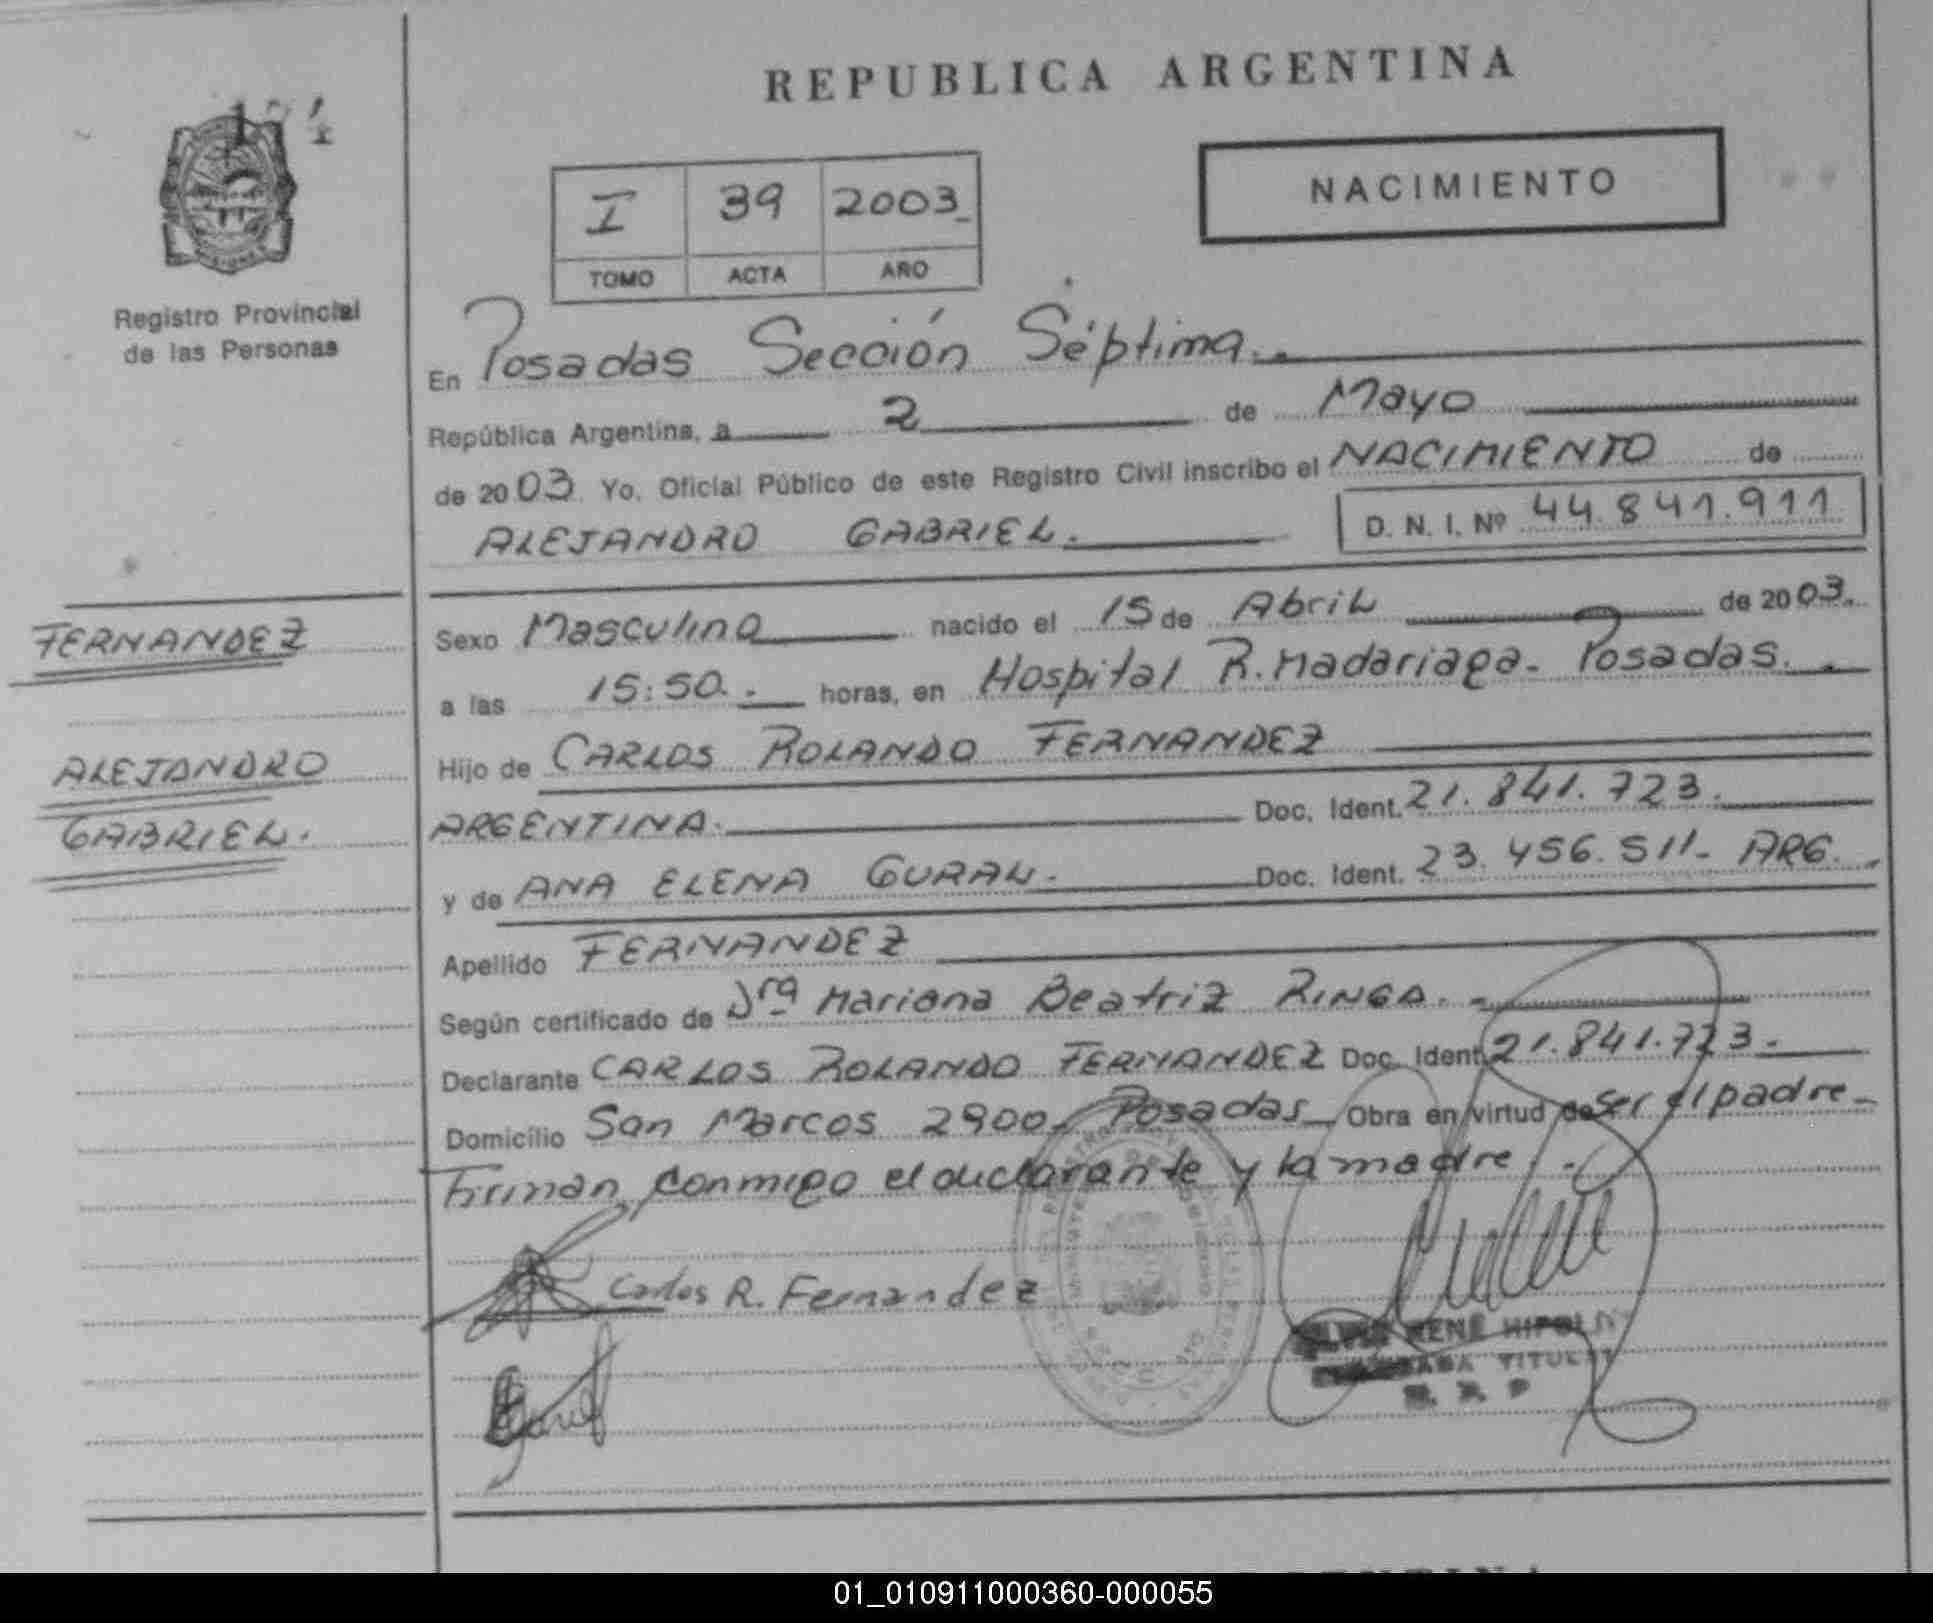 REPUBLICA ARGENTINA
NACIMIENTO
I 39 2003
TOMO ACTA AÑO
Registro Provincial
de las Personas
En Posadas Sección Séptima.
República Argentina, a 2 de Mayo
de 2003 Yo, Oficial Público de este Registro Civil inscribo el NACIMIENTO de
ALEJANDRO GABRIEL. D. N. I. Nº 44.841.911
FERNANDEZ
ALEJANDRO
GABRIEL.
Sexo Masculino nacido el 15 de Abril de 2003.
a las 15:50. horas, en Hospital R. Madariaga - Posadas.
Hijo de CARLOS ROLANDO FERNANDEZ
ARGENTINA. Doc. Ident. 21.841.723.
y de ANA ELENA GURAL. Doc. Ident. 23.456.511- ARG.
Apellido FERNANDEZ
Según certificado de Dra Mariana Beatriz RINGA.
Declarante CARLOS ROLANDO FERNANDEZ Doc. Ident. 21.841.723.
Domicilio San Marcos 2900, Posadas Obra en virtud de ser el padre-
Firman conmigo el declarante y la madre.
Carlos R. Fernandez
RENÉ
TITULAR
01_010911000360-000055